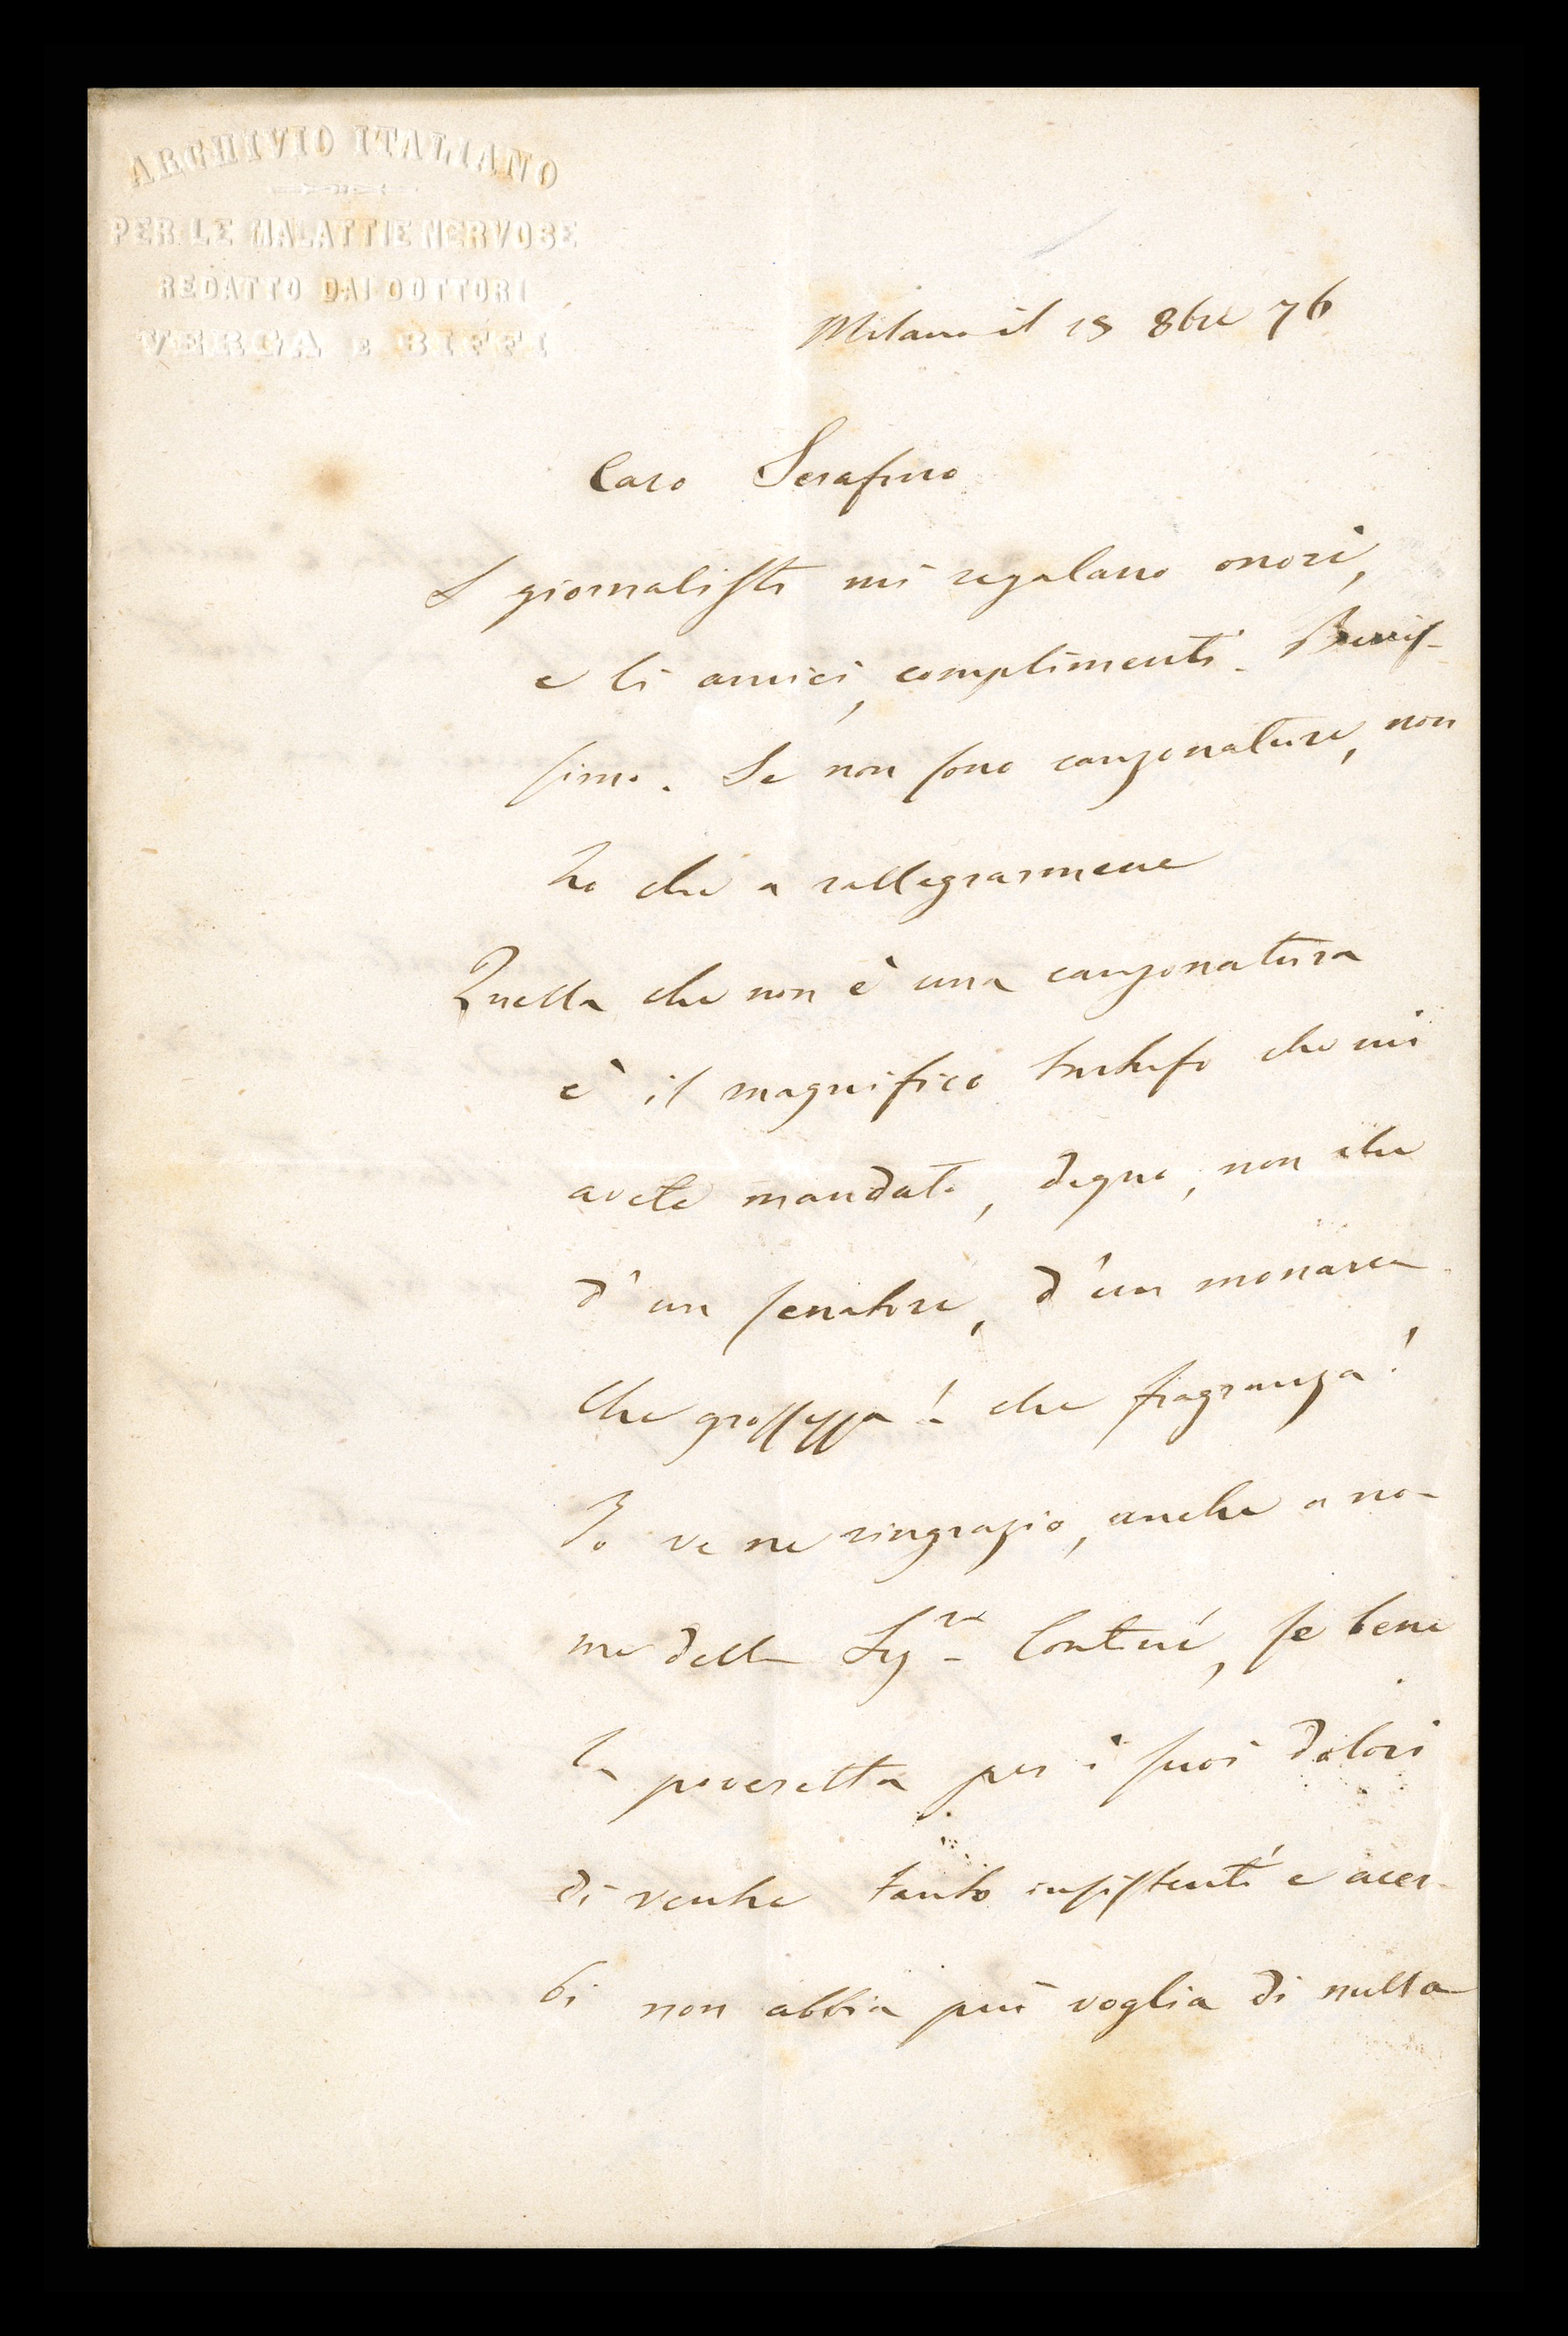 ARCHIVIO ITALIANO
PER LE MALATTIE NERVOSE
REDATTO DAI DOTTORI
VERGA E BIFFI
Milano il 15 8bre 76
Caro Serafino
I giornalisti mi regalano onori,
e li amici, complimenti. Benis-
simo. Se non sono canzonature, non
ho che a rallegrarmene
Quella che non è una canzonatura
è il magnifico tartufo che mi
avete mandato, degno, non che
d'un senatore, d'un monarca.
Che grossezza! che fragranza!
Io ve ne ringrazio, anche a no-
me della Sigra Contini, se bene
la poveretta per i suoi dolori
di ventre tanto insistenti e acer-
bi non abbia più voglia di nulla